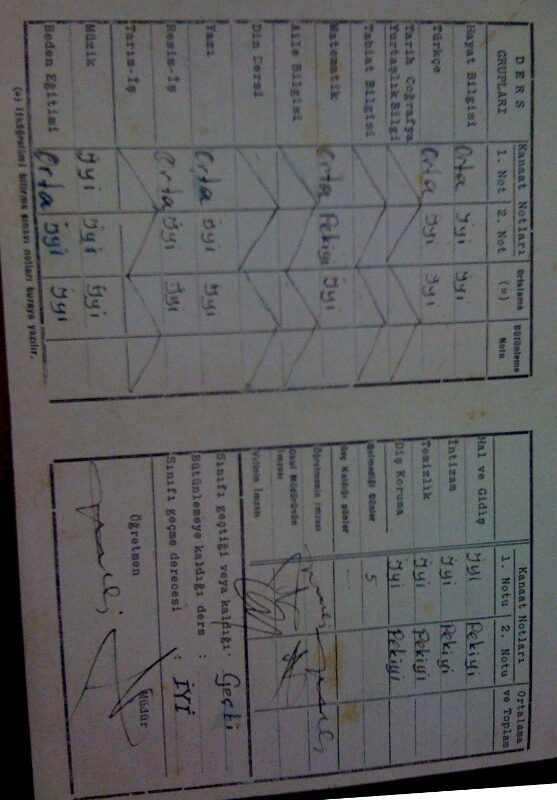 DERS GRUPLARI Kanaat Notları Ortalama Bütünleme
1. Not 2. Not (*) Notu
Hayat Bilgisi Orta İyi İyi
Türkçe Orta İyi İyi
Tarih Coğrafya
Yurtaşlık Bilgi
Tabiat Bilgisi
Matematik Orta Pekiyi İyi
Aile Bilgisi
Din Dersi
Yazı Orta İyi İyi
Resim-iş Orta İyi İyi
Tarım-iş
Müzik İyi İyi İyi
Beden Eğitimi Orta İyi İyi
(*) İlköğretimi bitirme sınavı notları buraya yazılır.
Kanaat Notları Ortalama
1. Notu 2. Notu ve Toplam
Hal ve Gidiş İyi Pekiyi
İntizam İyi Pekiyi
Temizlik İyi Pekiyi
Diş Koruma İyi Pekiyi
Gelmediği Günler 5
Geç Kaldığı günler
Öğretmenin imzası
Okul Müdürünün
imzası
Velinin imzası
Sınıfı geçtiği veya kaldığı: Geçti
Bütünlemeye kaldığı ders :
Sınıfı geçme derecesi : İYİ
Öğretmen Müdür